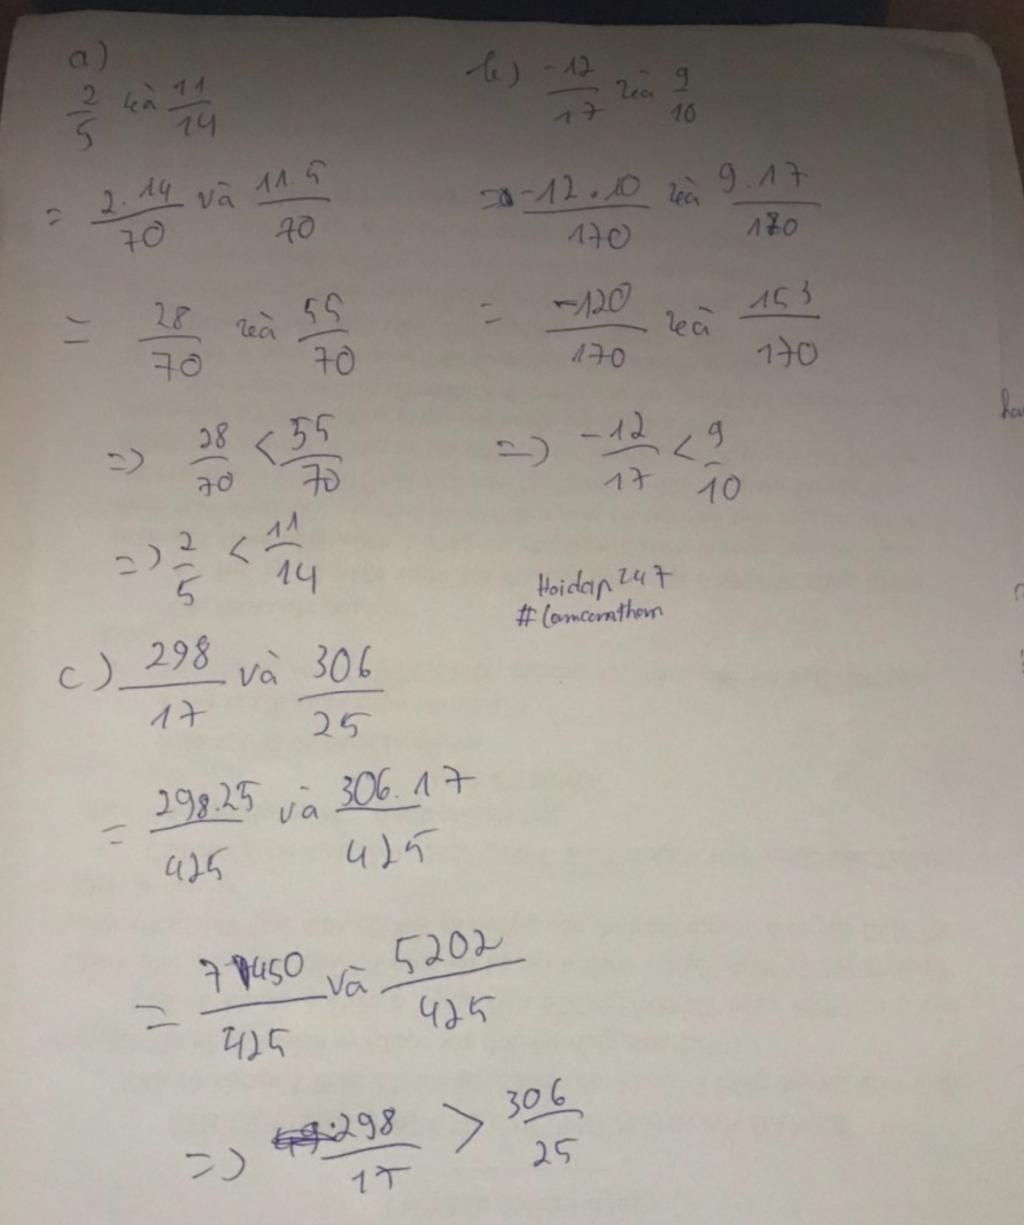 a)
2/5 và 11/14
= 2.14/70 và 11.5/70
= 28/70 và 55/70
=> 28/70 < 55/70
=> 2/5 < 11/14
b) -12/17 và 9/10
= -12.10/170 và 9.17/170
= -120/170 và 153/170
=> -12/17 < 9/10
Hoidap247
c) 298/17 và 306/25
= 298.25/425 và 306.17/425
= 7450/425 và 5202/425
=> 298/17 > 306/25